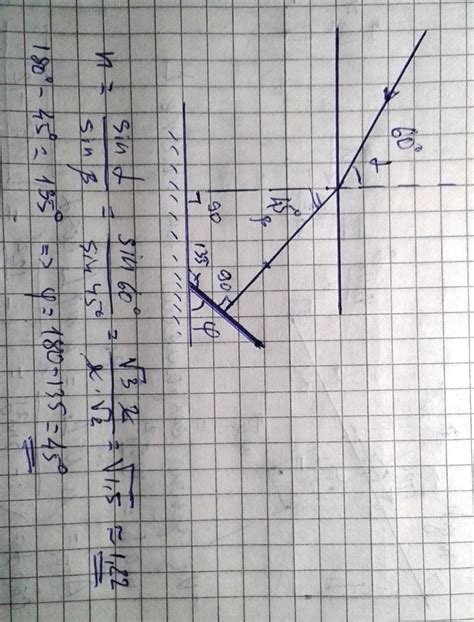 60°
α
45°
β
90
90
135
φ
n = sin α / sin β = sin 60° / sin 45° = √3 · 2 / 2 · √2 = √1,5 ≈ 1,22
180° - 45° = 135° => φ = 180 - 135 = 45°